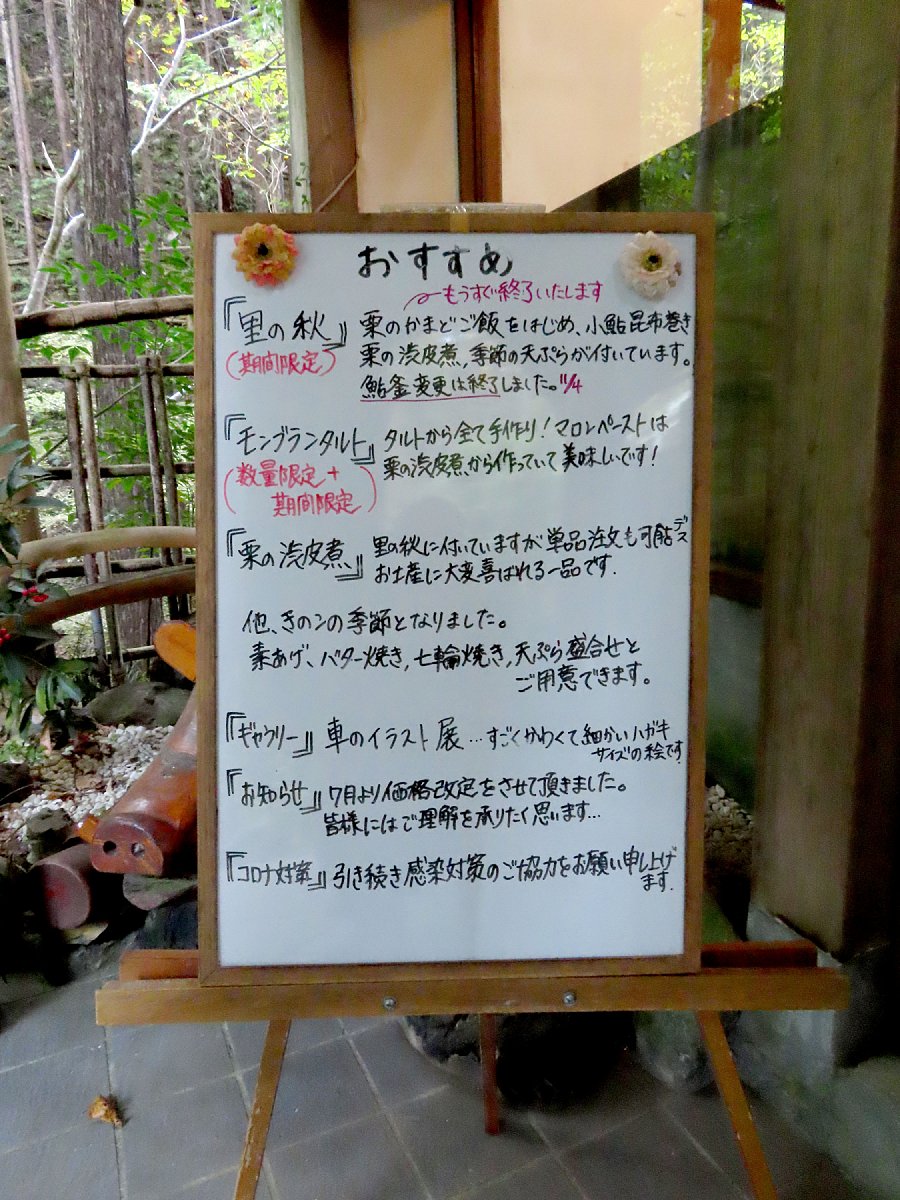 おすすめ
もうすぐ終了いたします
『里の秋』
(期間限定)
栗のかまどご飯をはじめ、小鮎昆布巻き
栗の渋皮煮,季節の天ぷらが付いています。
鮎釜変更は終了しました。11/4
『モンブランタルト』
(数量限定+
期間限定)
タルトから全て手作り!マロンペーストは
栗の渋皮煮から作っていて美味しいです!
『栗の渋皮煮』
里の秋に付いていますが単品注文も可能デス
お土産に大変喜ばれる一品です.
他、きのこの季節となりました。
素あげ、バター焼き,七輪焼き,天ぷら盛合せと
ご用意できます。
『ギャラリー』車のイラスト展…すごくかわくて細かいハガキ
サイズの絵です
『お知らせ』7月より価格改定をさせて頂きました。
皆様にはご理解を承りたく思います…
『コロナ対策』引き続き感染対策のご協力をお願い申し上げ
ます.